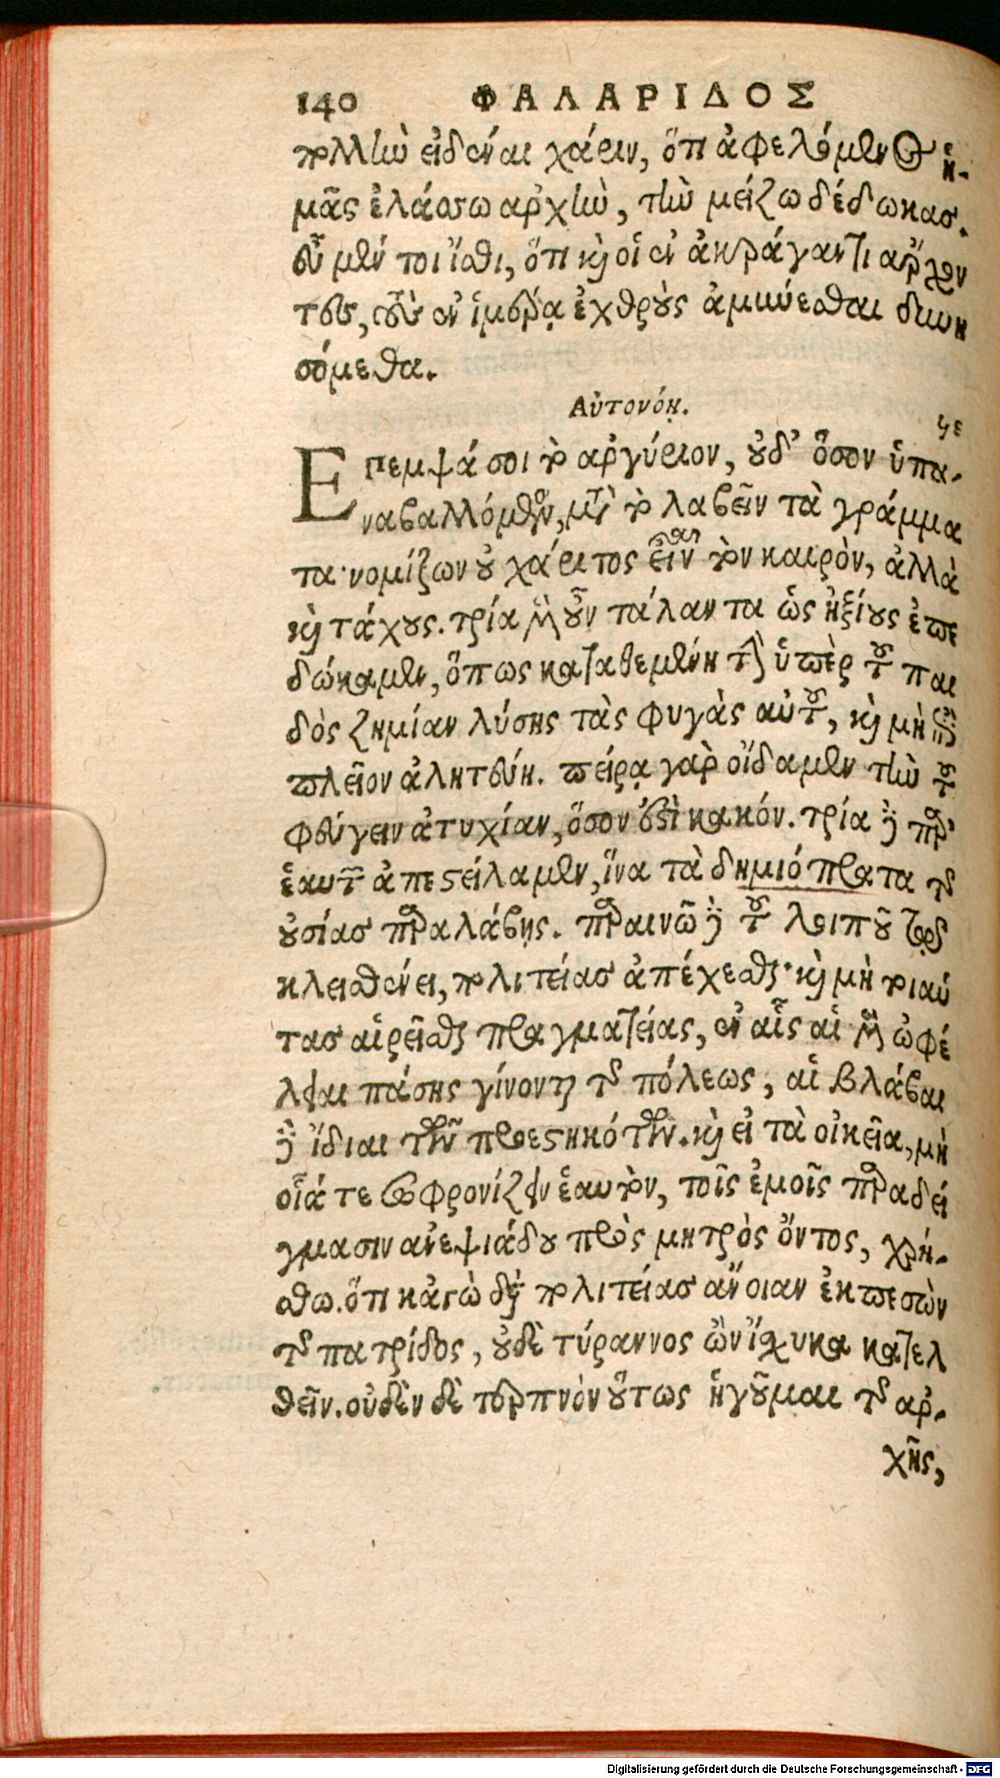 140 ΦΑΛΑΡΙΔΟΣ
πολλὴν εἰδέναι χάριν, ὅτι ἀφελόμενος ἡ-
μᾶς ἐλάσσω ἀρχὴν, τὴν μείζω δέδωκας.
εὖ μέν τοι ἴσθι, ὅτι καὶ οἱ ἐν ἀκράγαντι ἄρχον
τες, τοὺς ἐν ἱμέρᾳ ἐχθροὺς ἀμύνεσθαι δυνη
σόμεθα.
Αὐτονόῃ. ϟε
Επεμψά σοι τὸ ἀργύριον, οὐδ' ὅσον ὑπα-
ναβαλλόμενον, μετὰ τὸ λαβεῖν τὰ γράμμα
τα· νομίζων οὐ χάριτος εἶναι τὸν καιρὸν, ἀλλὰ
καὶ τάχους. τρία μὲν οὖν τάλαντα ὡς ἠξίους ἐπε
δώκαμεν, ὅπως καταθεμένη τὴν ὑπὲρ τοῦ παι
δὸς ζημίαν λύσῃς τὰς φυγὰς αὐτοῦ, καὶ μὴ ἐπὶ
πλεῖον ἀλητεύῃ. πείρᾳ γὰρ οἴδαμεν τὴν τοῦ
φεύγειν ἀτυχίαν, ὅσον ἐστὶ κακόν. τρία δὲ παρ'
ἑαυτοῦ ἀπεστείλαμεν, ἵνα τὰ δημιόπρατα τῆς
οὐσίας παραλάβῃς. παραινῶ δὲ τοῦ λοιποῦ
κλεισθένει, πολιτείας ἀπέχεσθαι· καὶ μὴ τοιαύ
τας αἱρεῖσθαι πραγματείας, ἐν αἷς αἱ μὲν ὠφέ
λειαι πάσης γίνονται τῆς πόλεως, αἱ βλάβαι
δὲ ἴδιαι τῶν προεστηκότων. καὶ εἰ τὰ οἰκεῖα, μὴ
οἷά τε σωφρονίζειν ἑαυτὸν, τοῖς ἐμοῖς παραδεί
γμασιν ἀνεψιάδου πρὸς μητρὸς ὄντος, χρή-
σθω. ὅτι κἀγὼ διὰ πολιτείας ἄνοιαν ἐκπεσὼν
τῆς πατρίδος, οὐδὲ τύραννος ὢν ἴσχυκα κατελ
θεῖν. οὐδὲν δὲ τερπνὸν οὕτως ἡγοῦμαι τῆς ἀρ-
χῆς,
Digitalisierung gefördert durch die Deutsche Forschungsgemeinschaft - DFG